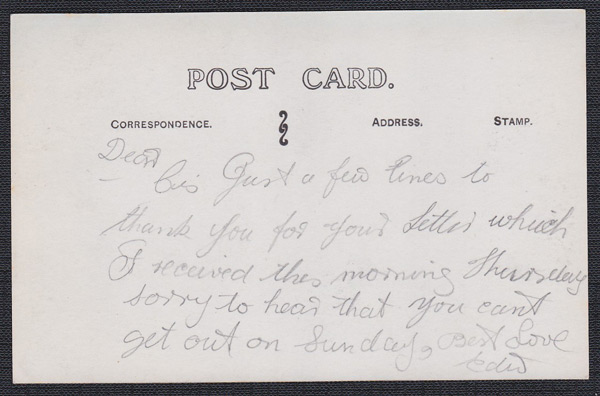 POST CARD.
CORRESPONDENCE. ADDRESS. STAMP.
Dear
Cis Just a few lines to
thank you for your letter which
I received this morning Thursday
sorry to hear that you cant
get out on Sunday, Best Love